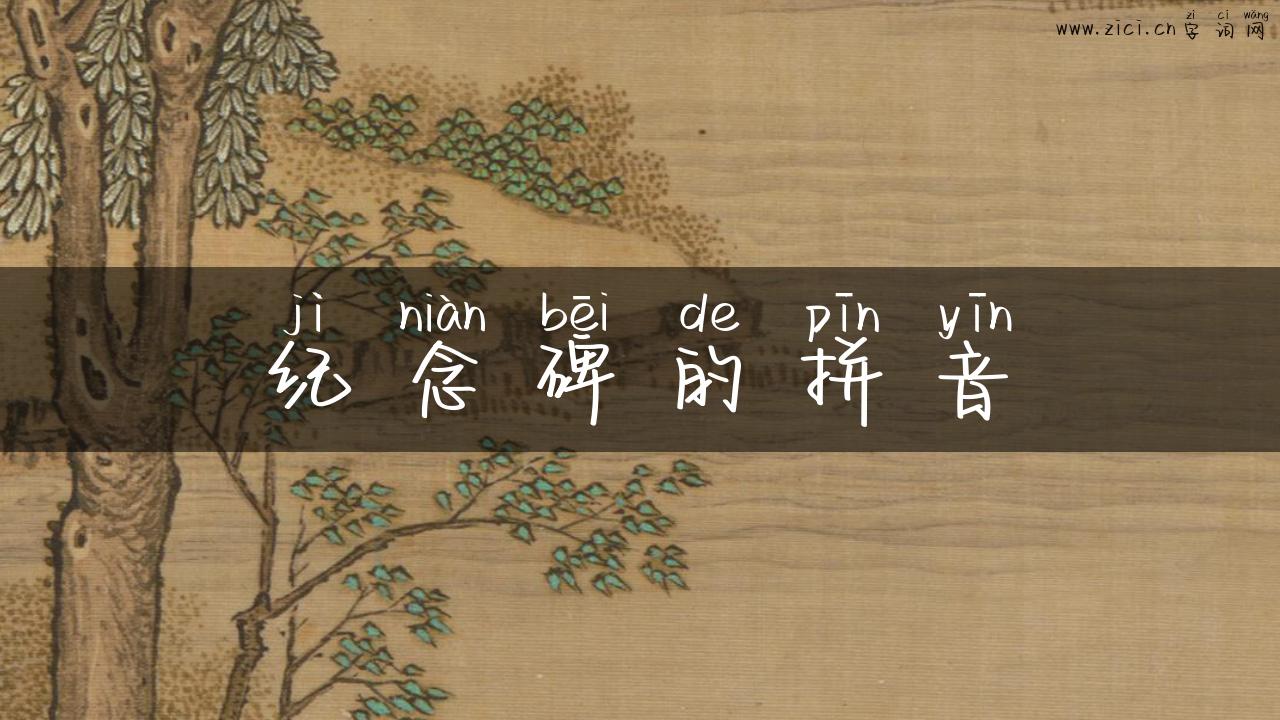 zì cí wǎng
www.zici.cn 字词网
jì niàn bēi de pīn yīn
纪念碑的拼音